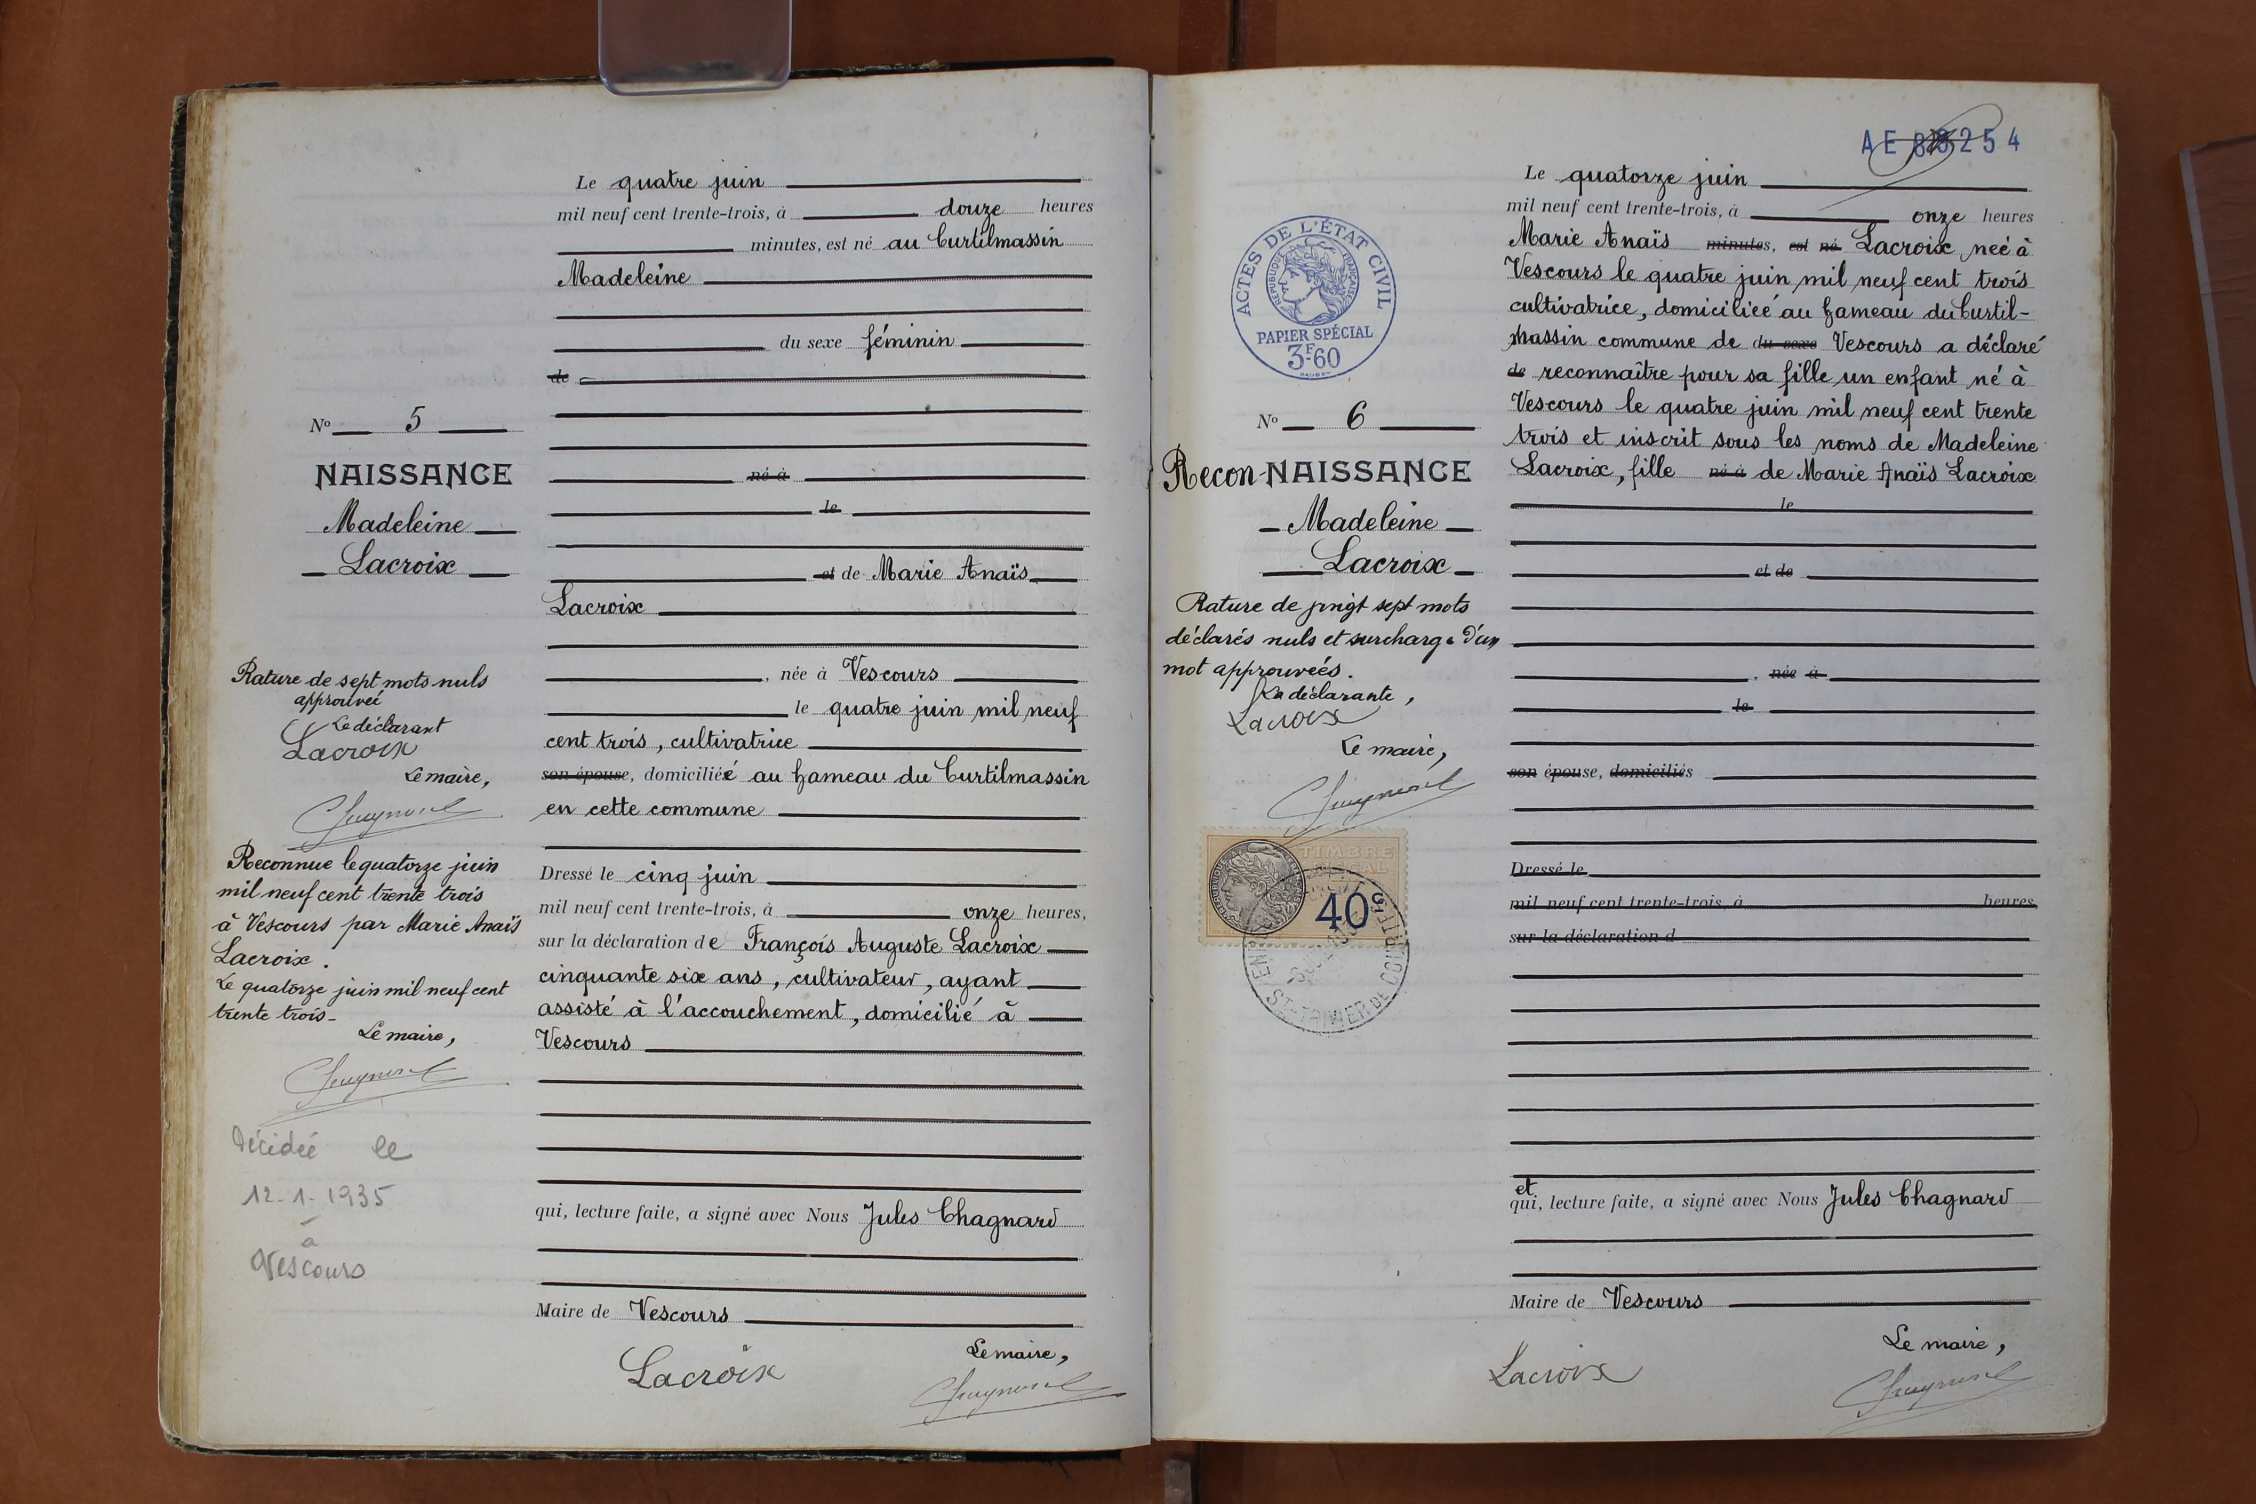 Le quatre juin
mil neuf cent trente-trois, à douze heures
minutes, est né au Curtilmassin
Madeleine
du sexe féminin
de
né à
le
et de Marie Anaïs
Lacroix
, née à Vescours
le quatre juin mil neuf
cent trois, cultivatrice
son épouse, domiciliéé au hameau du Curtilmassin
en cette commune
Dressé le cinq juin
mil neuf cent trente-trois, à onze heures,
sur la déclaration de François Auguste Lacroix
cinquante six ans, cultivateur, ayant
assisté à l'accouchement, domicilié à
Vescours
qui, lecture faite, a signé avec Nous Jules Chagnard
Maire de Vescours
Le maire,
Lacroix
No 5
NAISSANCE
Madeleine
Lacroix
Rature de sept mots nuls
approuvée
Le déclarant
Lacroix
Le maire,
Reconnue le quatorze juin
mil neuf cent trente trois
à Vescours par Marie Anaïs
Lacroix.
Le quatorze juin mil neuf cent
trente trois
Le maire,
Décidée le
12-1-1935
à
Vescours
AE 254
Le quatorze juin
mil neuf cent trente-trois, à onze heures
Marie Anaïs minutes, est né Lacroix neé à
Vescours le quatre juin mil neuf cent trois
cultivatrice, domiciliée au hameau du Curtil-
massin commune de du sexe Vescours a déclaré
de reconnaître pour sa fille un enfant né à
Vescours le quatre juin mil neuf cent trente
trois et inscrit sous les noms de Madeleine
Lacroix, fille né à de Marie Anaïs Lacroix
le
et de
, née à
le
son épouse, domiciliés
Dressé le
mil neuf cent trente-trois, à heures
sur la déclaration d
et
qui, lecture faite, a signé avec Nous Jules Chagnard
Maire de Vescours
Le maire,
Lacroix
ACTES DE L'ÉTAT CIVIL
RÉPUBLIQUE FRANÇAISE
PAPIER SPÉCIAL
3F60
No 6
Recon-NAISSANCE
Madeleine
Lacroix
Rature de vingt sept mots
déclarés nuls et surcharge d'un
mot approuveés.
La déclarante,
Lacroix
Le maire,
TIMBRE
FISCAL
40c
ST-TRIVIER-DE-COURTES